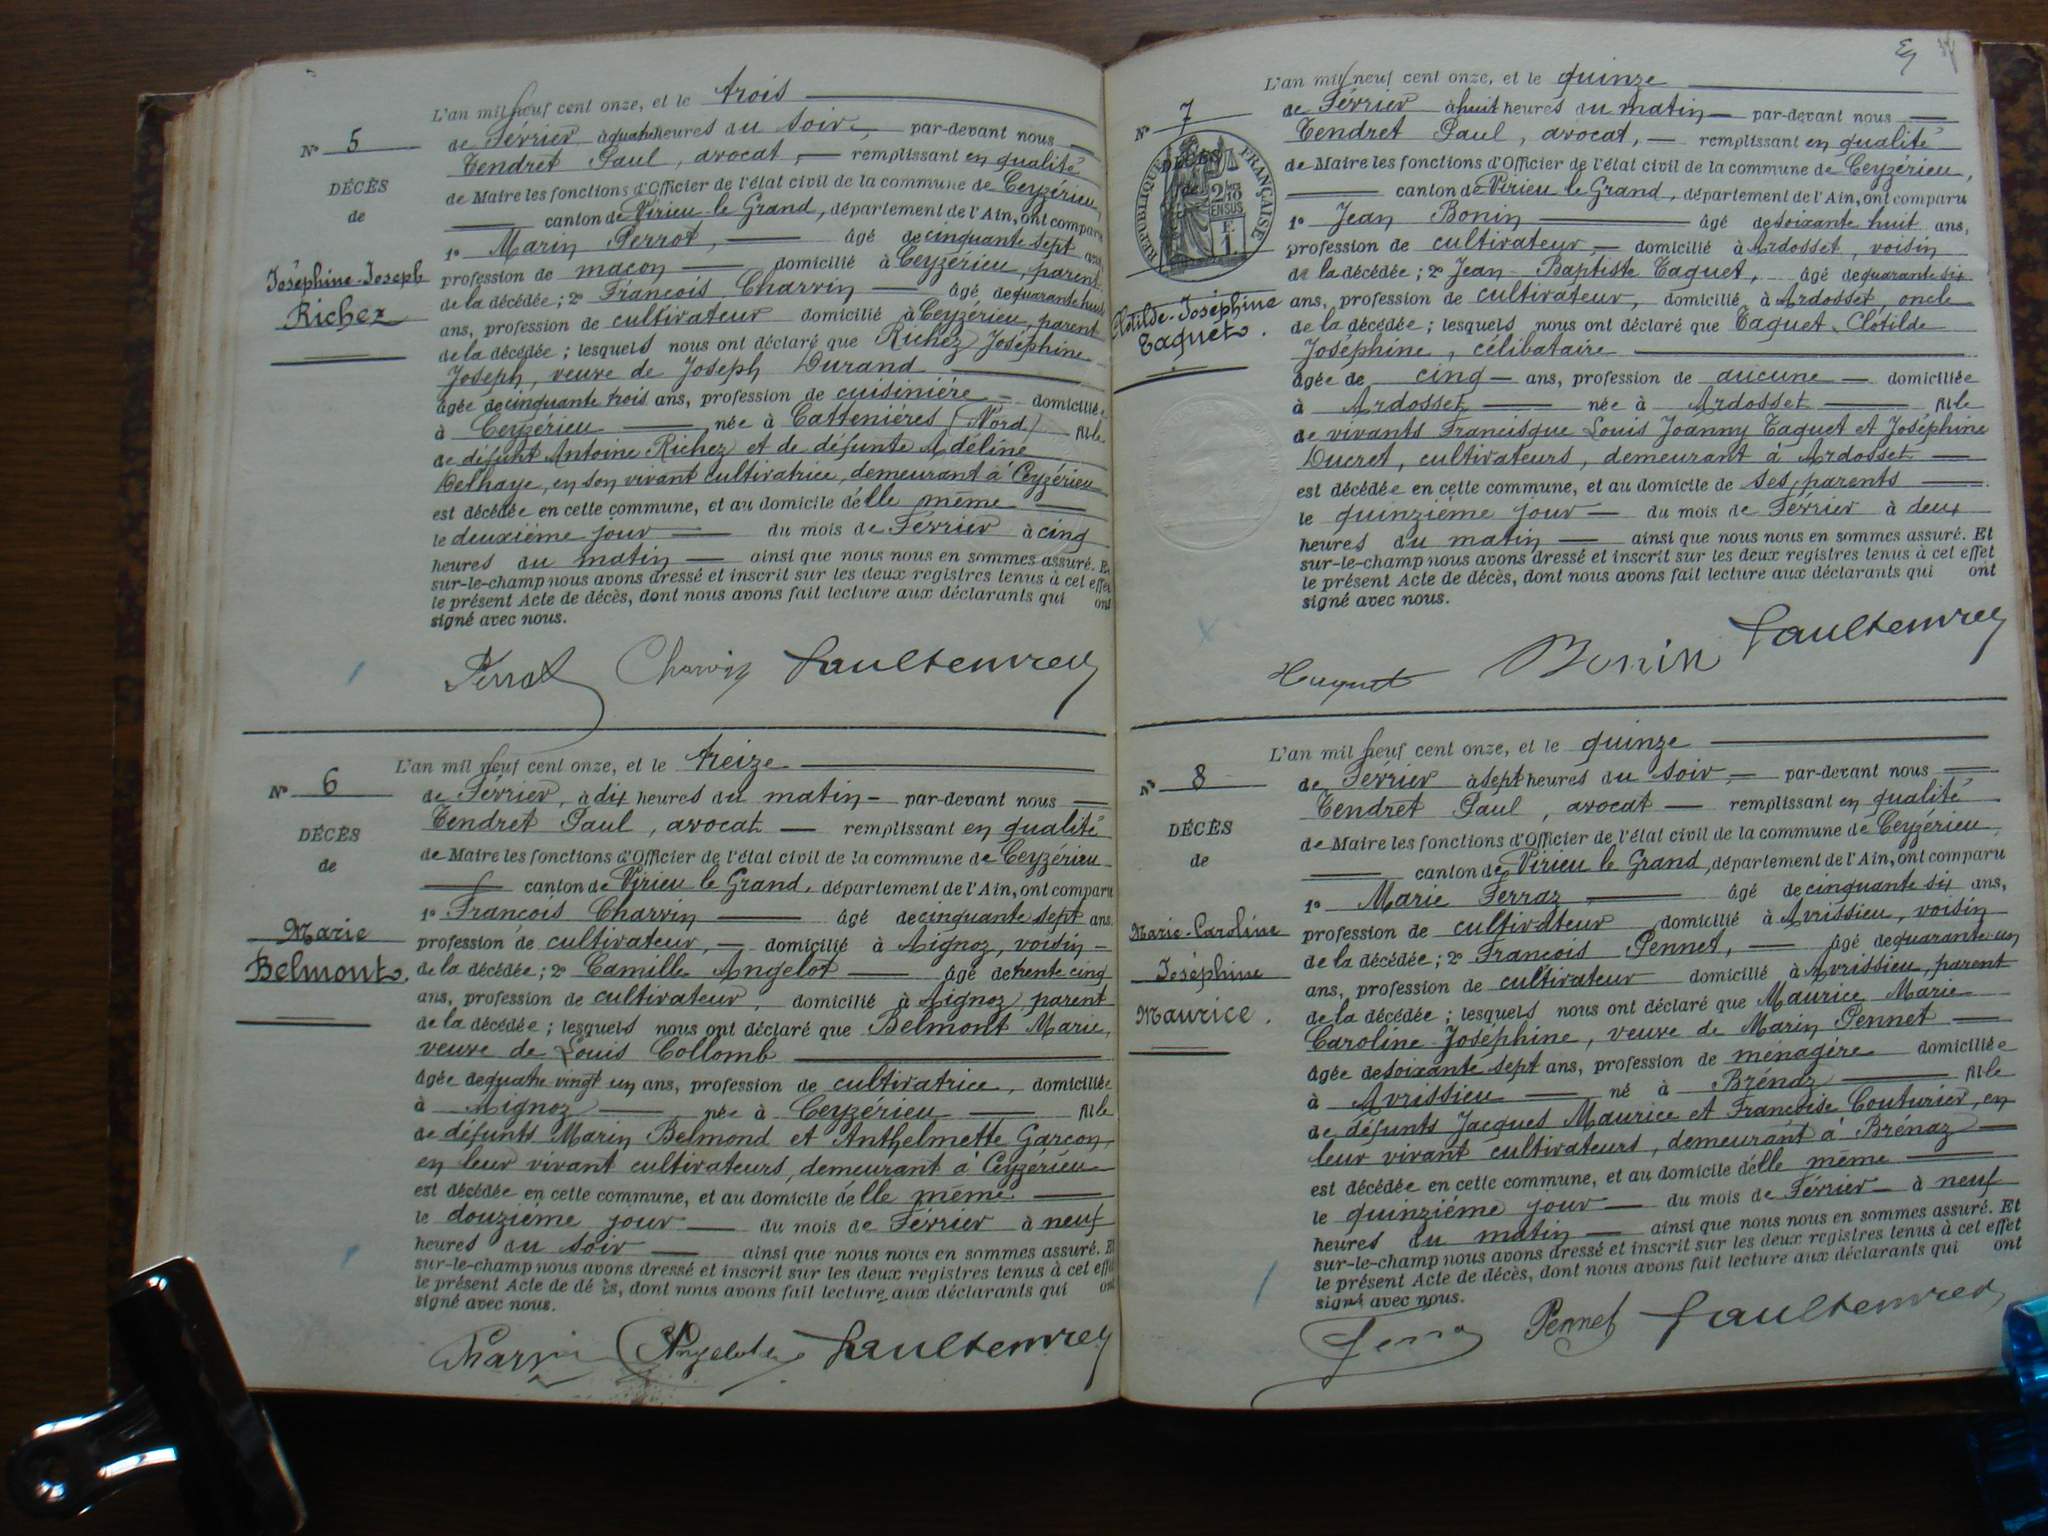 L'an mil neuf cent onze, et le trois
Nº 5
de Février à quatre heures du soir, par-devant nous
Tendret Paul, avocat, remplissant en qualité
DÉCÈS
de Maire les fonctions d'Officier de l'état civil de la commune de Ceyzérieu,
de
canton de Virieu-le-Grand, département de l'Ain, ont comparu
1º Marin Perrot, âgé de cinquante sept ans,
Joséphine-Joseph
profession de maçon domicilié à Ceyzérieu, parent
Richez
de la décédée; 2º François Charvin âgé de quarante huit
ans, profession de cultivateur domicilié à Ceyzérieu, parent
de la décédée; lesquels nous ont déclaré que Richez Joséphine
Joseph, veuve de Joseph Durand
âgée de cinquante trois ans, profession de cuisinière domiciliée
à Ceyzérieu née à Cattenières (Nord) fille
de défunt Antoine Richez et de défunte Adéline
Delhaye, en son vivant cultivatrice, demeurant à Ceyzérieu
est décédée en cette commune, et au domicile d'elle même
le deuxième jour du mois de Février à cinq
heures du matin ainsi que nous nous en sommes assuré. Et
sur-le-champ nous avons dressé et inscrit sur les deux registres tenus à cet effet
le présent Acte de décès, dont nous avons fait lecture aux déclarants qui ont
signé avec nous.
Perrot Charvin Paul Tendret
L'an mil neuf cent onze, et le treize
Nº 6
de Février, à dix heures du matin par-devant nous
Tendret Paul, avocat remplissant en qualité
DÉCÈS
de Maire les fonctions d'Officier de l'état civil de la commune de Ceyzérieu
de
canton de Virieu le Grand, département de l'Ain, ont comparu
1º François Charvin âgé de cinquante sept ans.
Marie
profession de cultivateur, domicilié à Aignoz, voisin
Belmont
de la décédée; 2º Camille Angelot âgé de trente cinq
ans, profession de cultivateur, domicilié à Aignoz, parent
de la décédée; lesquels nous ont déclaré que Belmont Marie,
veuve de Louis Collomb
âgée de quatre vingt un ans, profession de cultivatrice, domiciliée
à Aignoz née à Ceyzérieu fille
de défunts Marin Belmond et Anthelmette Garçon,
en leur vivant cultivateurs, demeurant à Ceyzérieu
est décédée en cette commune, et au domicile d'elle même
le douzième jour du mois de Février à neuf
heures du soir ainsi que nous nous en sommes assuré. Et
sur-le-champ nous avons dressé et inscrit sur les deux registres tenus à cet effet
le présent Acte de décès, dont nous avons fait lecture aux déclarants qui ont
signé avec nous.
Charvin Angelot Paul Tendret
L'an mil neuf cent onze, et le quinze
Nº 7
de Février à huit heures du matin par-devant nous
Tendret Paul, avocat, remplissant en qualité
DÉCÈS
RÉPUBLIQUE FRANÇAISE
de
de Maire les fonctions d'Officier de l'état civil de la commune de Ceyzérieu,
canton de Virieu le Grand, département de l'Ain, ont comparu
1º Jean Bonin âgé de soixante huit ans,
profession de cultivateur domicilié à Ardosset, voisin
de la décédée; 2º Jean-Baptiste Taguet, âgé de quarante six
Clotilde-Joséphine
Taguet.
ans, profession de cultivateur, domicilié à Ardosset, oncle
de la décédée; lesquels nous ont déclaré que Taguet Clotilde
Joséphine, célibataire
âgée de cinq ans, profession de aucune domiciliée
à Ardosset née à Ardosset fille
de vivants Francisque Louis Joanny Taguet et Joséphine
Ducret, cultivateurs, demeurant à Ardosset
est décédée en cette commune, et au domicile de ses parents
le quinzième jour du mois de Février à deux
heures du matin ainsi que nous nous en sommes assuré. Et
sur-le-champ nous avons dressé et inscrit sur les deux registres tenus à cet effet
le présent Acte de décès, dont nous avons fait lecture aux déclarants qui ont
signé avec nous.
Bonin Paul Tendret
L'an mil neuf cent onze, et le quinze
Nº 8
de Février à sept heures du soir, par-devant nous
Tendret Paul, avocat remplissant en qualité
DÉCÈS
de Maire les fonctions d'Officier de l'état civil de la commune de Ceyzérieu,
de
canton de Virieu le Grand, département de l'Ain, ont comparu
1º Marie Ferraz âgé de cinquante six ans,
Marie-Caroline
profession de cultivateur domicilié à Avrissieu, voisin
Joséphine
de la décédée; 2º François Pennet, âgé de quarante-un
ans, profession de cultivateur domicilié à Avrissieu, parent
Maurice.
de la décédée; lesquels nous ont déclaré que Maurice Marie
Caroline-Joséphine, veuve de Marin Pennet
âgée de soixante-sept ans, profession de ménagère domiciliée
à Avrissieu né à Brénaz fille
de défunts Jacques Maurice et Françoise Couturier, en
leur vivant cultivateurs, demeurant à Brénaz
est décédée en cette commune, et au domicile d'elle même
le quinzième jour du mois de Février à neuf
heures du matin ainsi que nous nous en sommes assuré. Et
sur-le-champ nous avons dressé et inscrit sur les deux registres tenus à cet effet
le présent Acte de décès, dont nous avons fait lecture aux déclarants qui ont
signé avec nous.
Pennet Paul Tendret